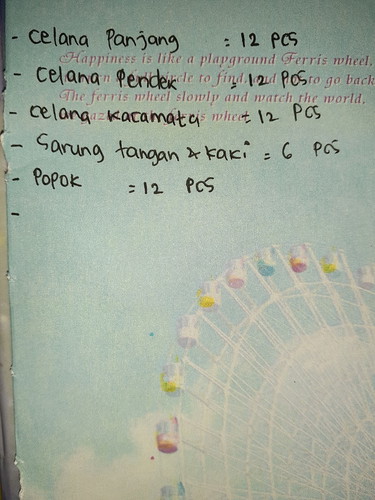 - Celana Panjang = 12 PCS
Happiness is like a playground Ferris wheel.
- Celana Pendek = 12 PCS
circle to find and to go back
The ferris wheel slowly and watch the world.
- celana kacamata = 12 PCS
whee
- Sarung tangan & kaki = 6 PCS
- POPOK = 12 PCS
-